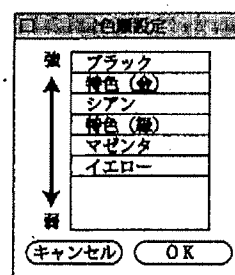 色順設定
強
ブラック
特色（金）
シアン
特色（緑）
マゼンタ
イエロー
弱
キャンセル
OK